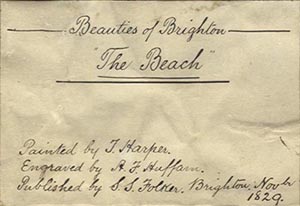 Beauties of Brighton
"The Beach"
Painted by T. Harper.
Engraved by A. F. Huffam.
Published by S. S. Folker. Brighton, Novbr
1829.